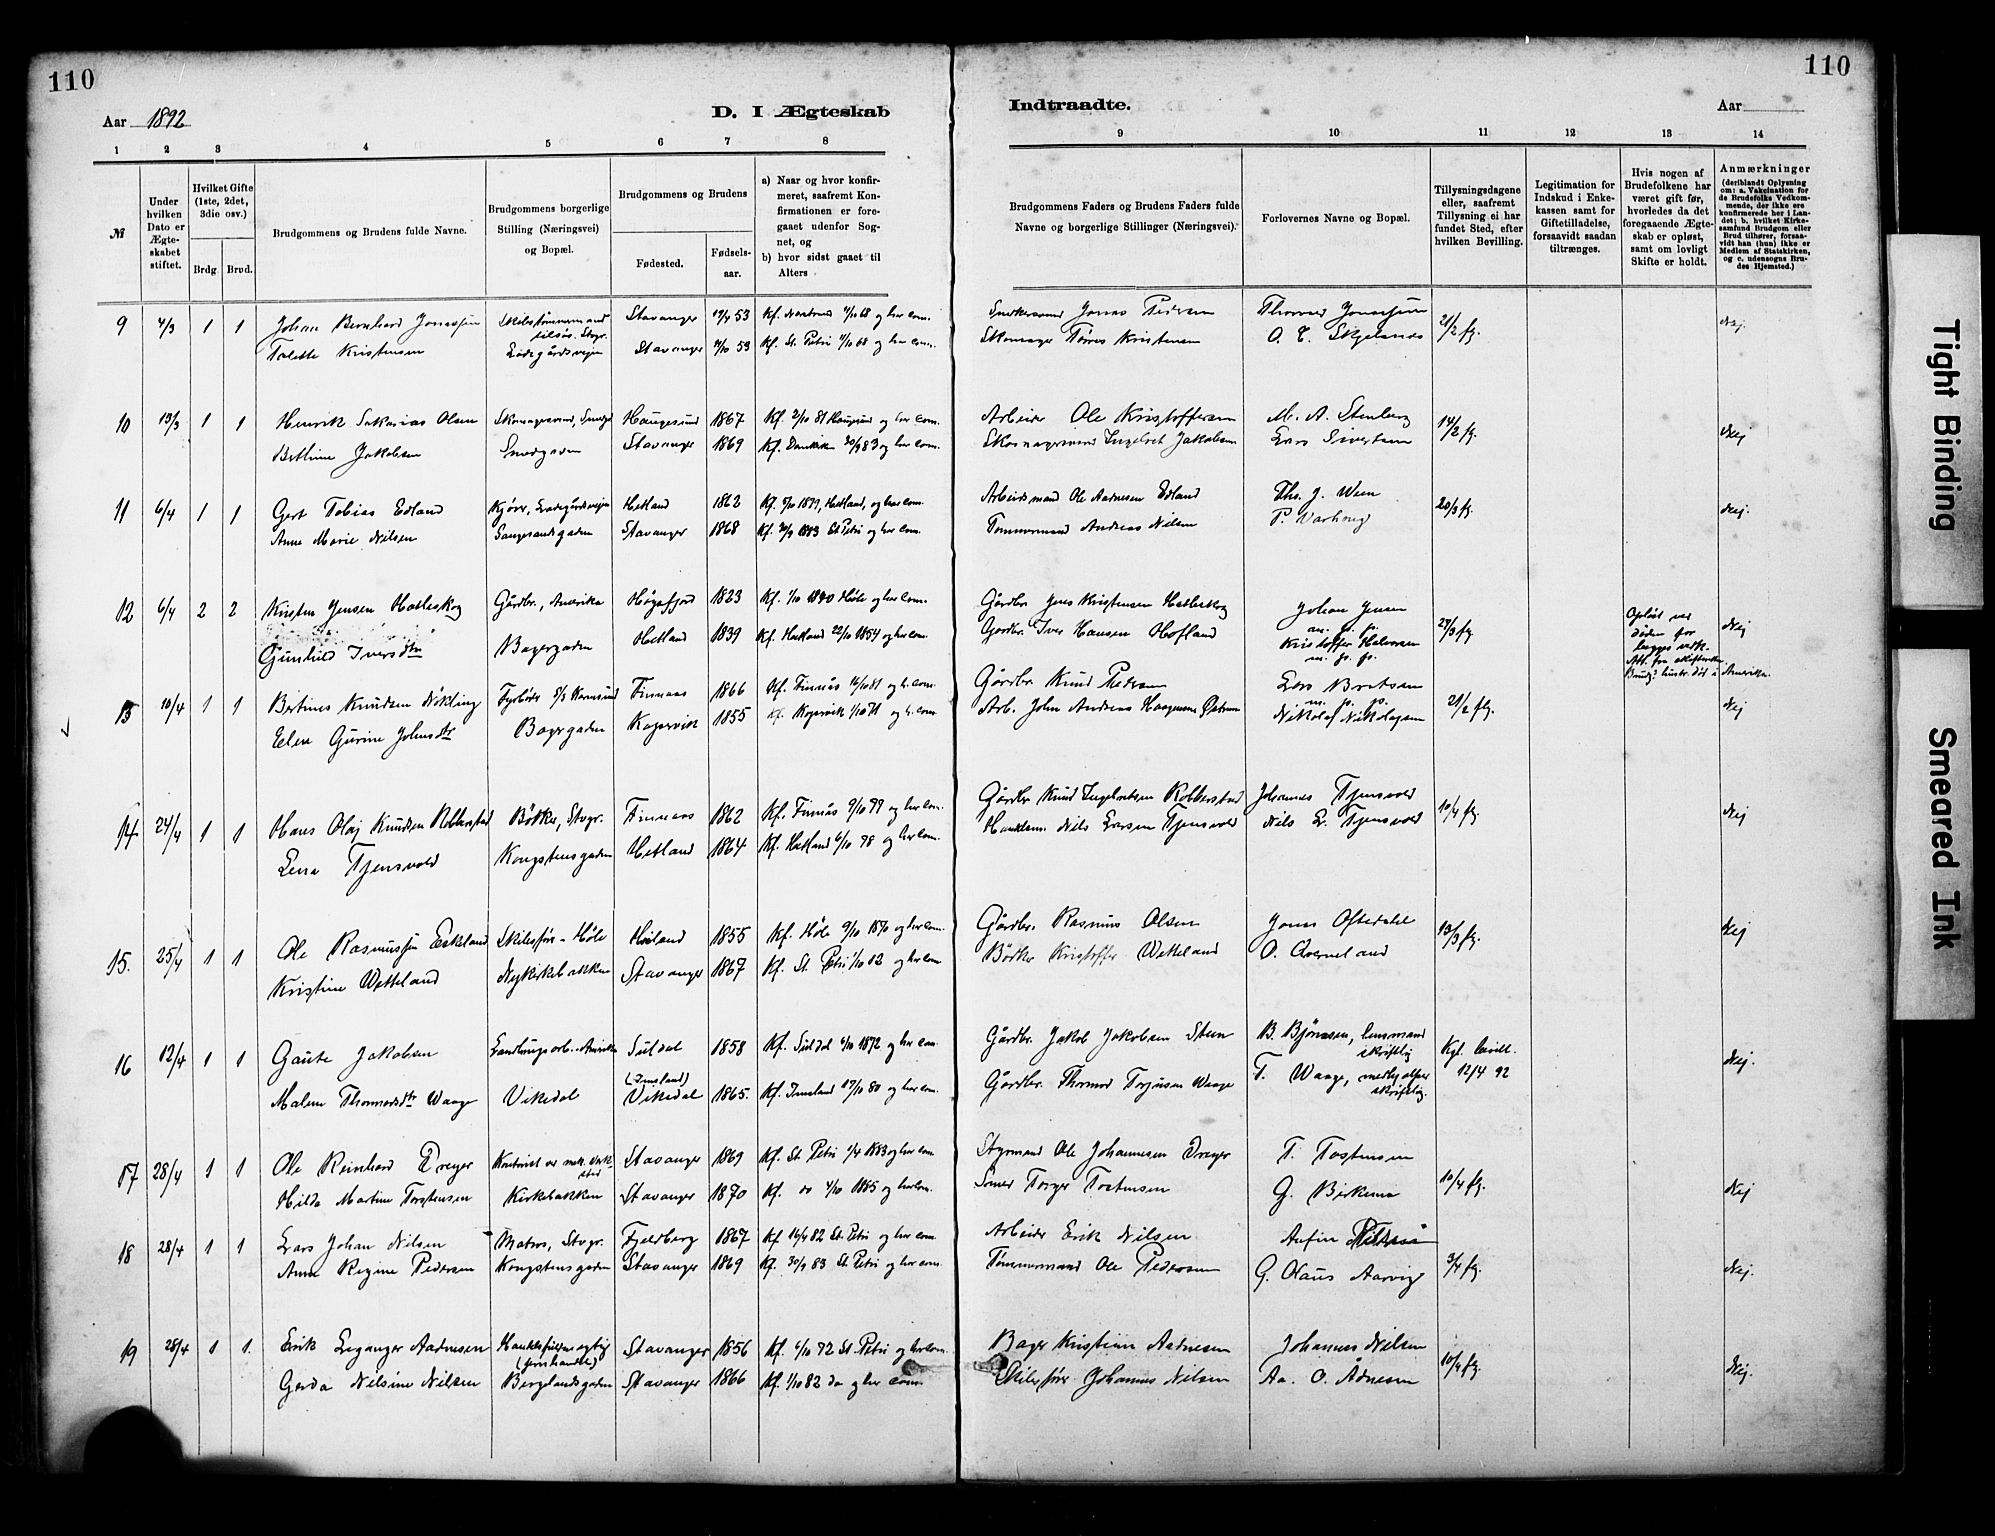 110
110
Aar 1892
D. I Ægteskab
Indtraadte.
Aar
1 2 3 4 5 6 7 8 9 10 11 12 13 14
№
Under hvilken Dato er Ægteskabet stiftet.
Hvilket Gifte (1ste, 2det, 3die osv.)
Brdg. Brud.
Brudgommens og Brudens fulde Navne.
Brudgommens borgerlige Stilling (Næringsvei) og Bopæl.
Brudgommens og Brudens
Fødested.
Fødselsaar.
a) Naar og hvor konfirmeret, saafremt Konfirmationen er foregaaet udenfor Sognet, og
b) hvor sidst gaaet til Alters
Brudgommens Faders og Brudens Faders fulde Navne og borgerlige Stillinger (Næringsvei).
Forlovernes Navne og Bopæl.
Tillysningsdagene eller, saafremt Tillysning ei har fundet Sted, efter hvilken Bevilling.
Legitimation for Indskud i Enkekassen samt for Giftetilladelse, forsaavidt saadan tiltrænges.
Hvis nogen af Brudefolkene har været gift før, hvorledes da det foregaaende Ægteskab er opløst, samt om lovligt Skifte er holdt.
Anmærkninger (deriblandt Oplysning om: a. Vakcination for de Brudefolks Vedkommende, der ikke ere konfirmerede her i Landet; b. hvilket Kirkesamfund Brudgom eller Brud tilhører, forsaavidt han (hun) ikke er Medlem af Statskirken, og c. udensogns Brudes Hjemsted.)
9 4/3 1 1 Johan Bernhard Jonassen Stavanger 53 og her com. Jonas Pedersen Thomas Jonassen 21/2 fg. Nej.
Tolette Kristensen Stavanger 53 Kf. St. Petri og her com. Skomager Tørres Kristensen O. T. Skjelanes
10 13/3 1 1 Henrik Sakarias Olsen Haugesund 1867 Kf. 2/10 81 Haugesund og her com. Arbeider Ole Kristoffersen M. A. Stenberg 14/2 fg. Nej
Bertine Jakobsen Smedgaden Stavanger 1869 Kf. Domkirken 30/9 83 og her com. Ingebret Jakobsen Lars Sivertsen
11 6/4 1 1 Gert Tobias Edland Hetland 1862 Kf. 1877, Hetland, og her com. Arbeidsmand Ole Aadnesen Edland Ths. J. Wiem 20/3 fg. Nej.
Anne Marie Nilsen Langesandsgaden Stavanger 1868 Kf. 30/9 1883 St. Petri og her com. Tømmermand Andreas Nilsen P. Varhoug
12 6/4 2 2 Kristen Jensen Hatleskog Gårdbr., Amerika Høgsfjord 1823 Kf. 1/10 1840 Høle og her com. Gårdbr. Jens Kristensen Hatleskog Johan Jensen 27/3 fg. Opløst ved døden for begges vedk. Nej
Gunhild Iversdtr Bagergaden Hetland 1839 Kf. Hetland 22/10 1854 og her com. Gårdbr. Iver Hansen Hofland Kristoffer Halvorsen Amerika.
13 10/4 1 1 Bertines Knudsen Nökling Finnaas 1866 Kf. Finnås 16/10 81 og h. com. Gårdbr. Knud Pedersen Lars Bertsen 21/2 fg. Nej
Elen Gurine Johnsdtr Bagergaden Kopervik 1855 Kf. Kopervik 1/10 71 og h. com. Arb. John Andreas Nikolaj Nikolajsen
14 24/4 1 1 Hans Olaj Knudsen Robberstad Bödker, Stvgr. Finnaas 1862 Kf. Finnås 9/10 77 og her com. Gårdbr. Knud Ingebretsen Robberstad Johannes Tjensvold 10/4 fg. Nej
Lena Tjensvold Kongstensgaden Hetland 1864 Kf. Hetland 6/10 78 og her com. Nils Larsen Tjensvold Nils L. Tjensvold
15. 25/4 1 1 Ole Rasmussen Eskeland Skibsfør. Høle 1855 Kf. Høle 9/10 1870 og her com. Gårdbr. Rasmus Olsen Jonas Oftedal 13/3 fg. Nej
Kristine Wetteland Nykirkebakken Stavanger 1867 Kf. St. Petri 1/10 82 og her com Bödker Kristoffer Wetteland O. Qverneland
16 12/4 1 1 Gaute Jakobsen Amerika Suldal 1858 Kf. Suldal 6/10 1872 og her com. Gårdbr. Jakob Jakobsen Steen B. Bjørnsen, lensmand skriftlig Kgl. bevill. 12/4 92 Nej.
Malene Thormodsdtr Waage Vikedal (Imsland) Vikedal 1865. Kf. Imsland 17/10 80 og her com. Gårdbr. Thormod Torjusen Waage T. Waage, skriftlig.
17 28/4 1 1 Ole Reinhard Dreyer Kontorist ved mek. Stavanger 1869 Kf. St. Petri 1/4 1883 og her com Styrmand Ole Johannesen Dreyer T. Tostensen 10/4 fg. Nej
Hilda Martine Torstensen Kirkebakken Stavanger 1870 Kf. do 4/10 1885 og her com. Torger Tostensen G. Birkemo
18 28/4 1 1 Lars Johan Nilsen Matros, Stvgr. Fjeldberg 1867 Kf 16/4 82 St. Petri og her com. Arbeider Erik Nilsen Anfin 3/4 fg. Nej.
Anne Regine Pedersen Kongstensgaden Stavanger 1869 Kf. 30/9 83 St. Petri og her com. Tømmermand Ole Pedersen G. Olaus Aarvig
19 28/4 1 1. Erik Leganger Aadnesen (jernhandel) Stavanger 1856 Kf. 6/10 72 St. Petri og her com. Bager Kristian Aadnesen Johannes Nilsen 10/4 fg. Nej.
Gerda Nilsine Nilsen Berglandsgaden Stavanger 1866 Kf. 1/10 82 do og her com. Skibsfører Johannes Nilsen Aa. O. Ådnesen
Tight Binding
Smeared Ink